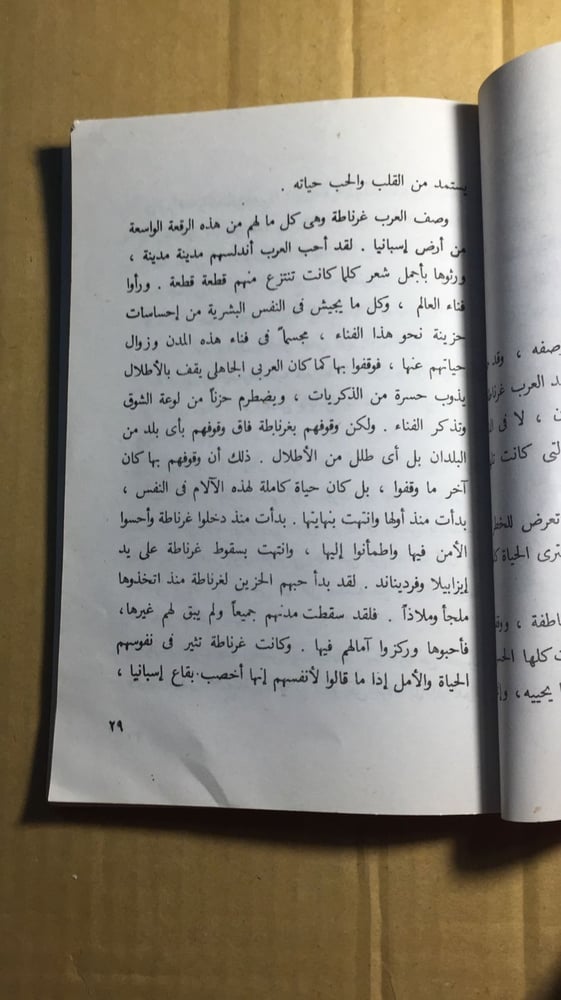 يستمد من القلب والحب حياته .
وصف العرب غرناطة وهى كل ما لهم من هذه الرقعة الواسعة
من أرض إسبانيا . لقد أحب العرب أندلسهم مدينة مدينة ،
ورثوها بأجمل شعر كلما كانت تنتزع منهم قطعة قطعة . ورأوا
فناء العالم ، وكل ما يجيش فى النفس البشرية من إحساسات
حزينة نحو هذا الفناء ، مجسماً فى فناء هذه المدن وزوال
حياتهم عنها ، فوقفوا بها كما كان العربى الجاهلى يقف بالأطلال
يذوب حسرة من الذكريات ، ويضطرم حزناً من لوعة الشوق
وتذكر الفناء . ولكن وقوفهم بغرناطة فاق وقوفهم بأى بلد من
البلدان بل أى طلل من الأطلال . ذلك أن وقوفهم بها كان
آخر ما وقفوا ، بل كان حياة كاملة لهذه الآلام فى النفس ،
بدأت منذ أولها وانتهت بنهايتها . بدأت منذ دخلوا غرناطة وأحسوا
الأمن فيها واطمأنوا إليها ، وانتهت بسقوط غرناطة على يد
إيزابيلا وفرديناند . لقد بدأ حبهم الحزين لغرناطة منذ اتخذوها
ملجأ وملاذاً . فلقد سقطت مدنهم جميعاً ولم يبق لهم غيرها،
فأحبوها وركزوا آمالهم فيها . وكانت غرناطة تثير فى نفوسهم
الحياة والأمل إذا ما قالوا لأنفسهم إنها أخصب بقاع إسبانيا ،
٢٩
وصفه ، وقد
العرب
، لا فى
التى كانت
تعرض
الحياة
، وقو
كلها
يحييه ،